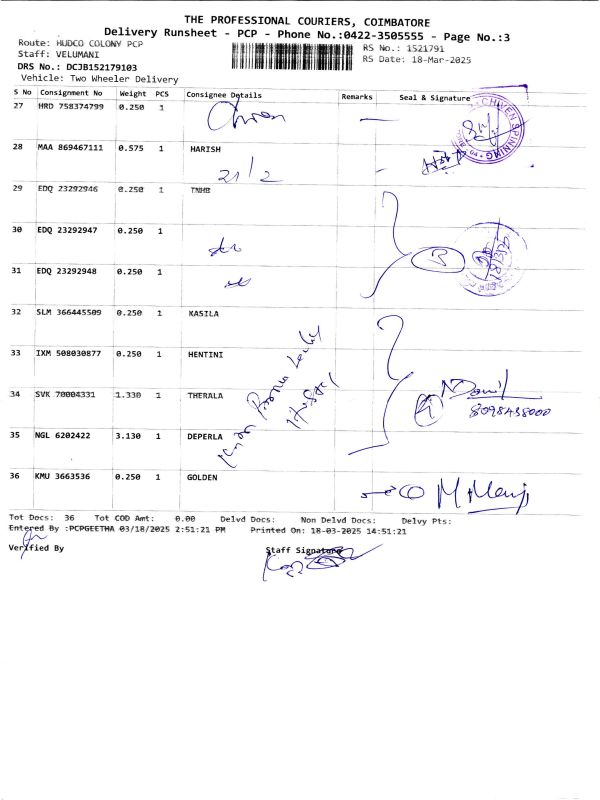 THE PROFESSIONAL COURIERS, COIMBATORE
Delivery Runsheet - PCP - Phone No.:0422-3505555 - Page No.:3
Route: HUDCO COLONY PCP
Staff: VELUMANI
DRS No.: DCJB152179103
Vehicle: Two Wheeler Delivery
RS No.: 1521791
RS Date: 18-Mar-2025
S No Consignment No Weight PCS Consignee Details Remarks Seal & Signature
27 HRD 758374799 0.250 1
28 MAA 869467111 0.575 1 HARISH
21/2
29 EDQ 23292946 0.250 1 TNHB
30 EDQ 23292947 0.250 1
3
31 EDQ 23292948 0.250 1
32 SLM 366445509 0.250 1 KASILA
33 IXM 508030877 0.250 1 HENTINI
34 SVK 70004331 1.330 1 THERALA
35 NGL 6202422 3.130 1 DEPERLA
36 KMU 3663536 0.250 1 GOLDEN
Tot Docs: 36 Tot COD Amt: 0.00 Delvd Docs: Non Delvd Docs: Delvy Pts:
Entered By :PCPGEETHA 03/18/2025 2:51:21 PM Printed On: 18-03-2025 14:51:21
Verified By Staff Signature